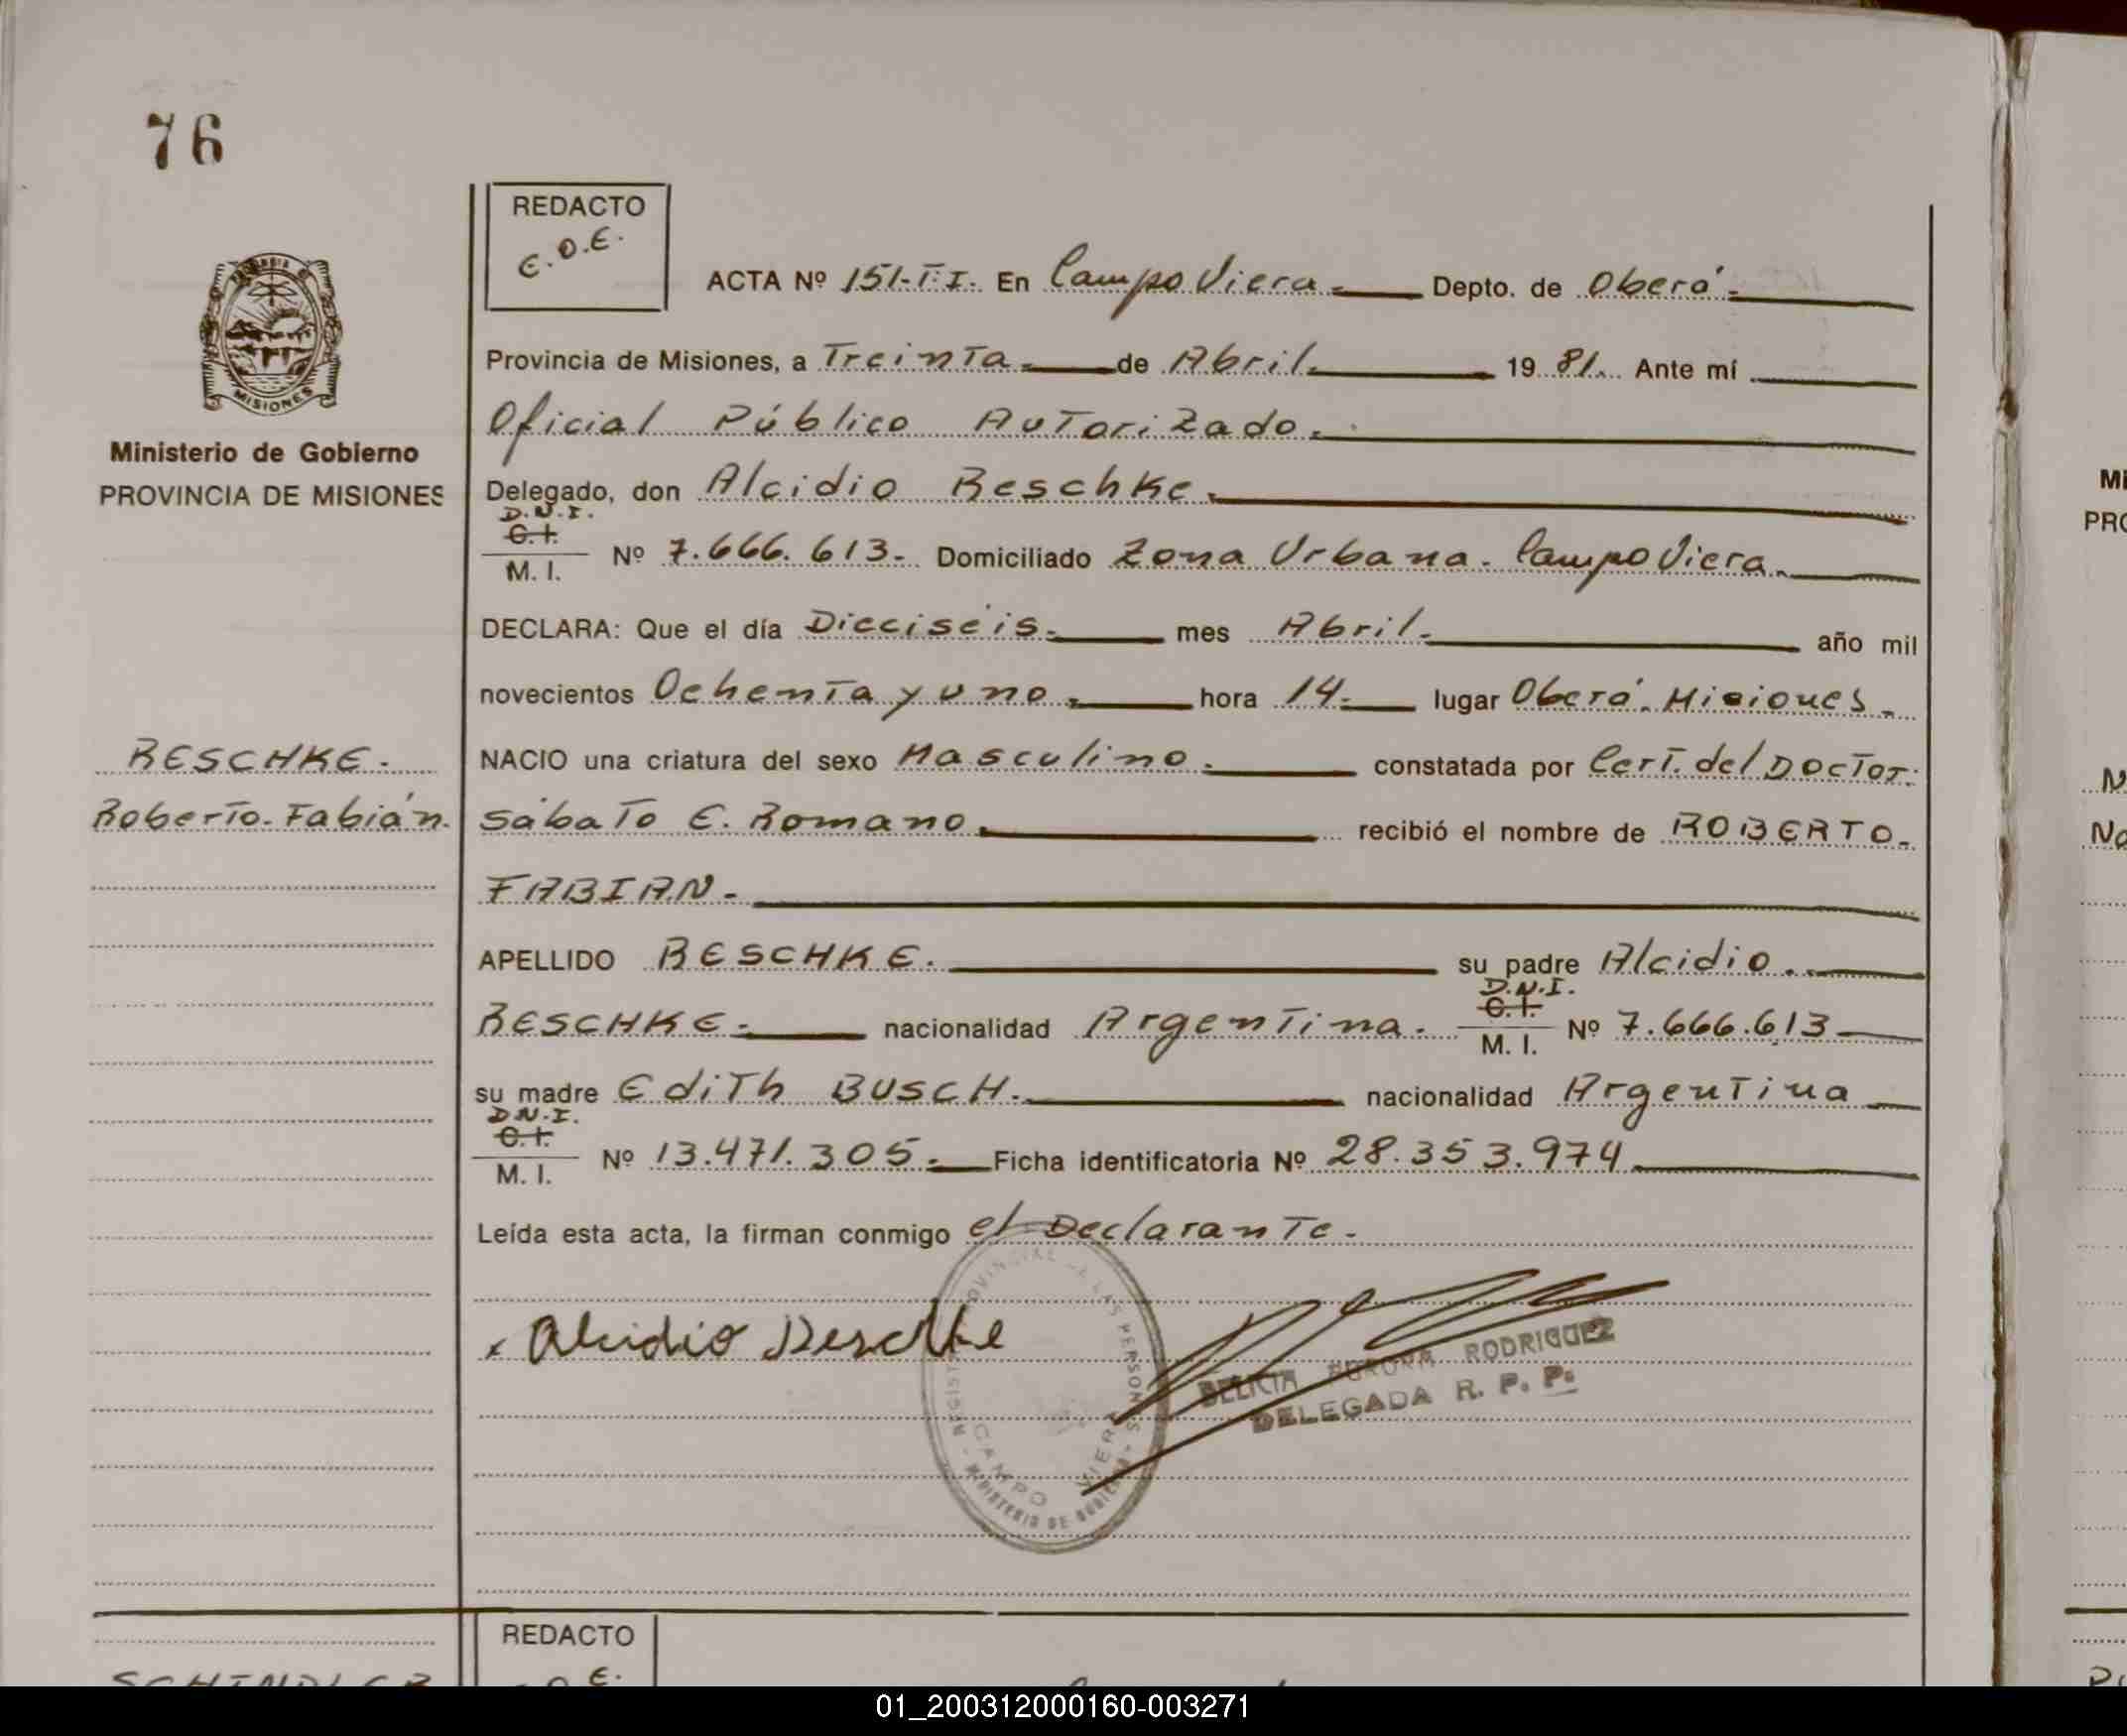 76
REDACTO
E.O.E.
ACTA Nº 151-T:I. En Campo Viera. Depto. de Oberá.
Provincia de Misiones, a Treinta. de Abril. 19 81. Ante mí
Oficial Público Autorizado.
Ministerio de Gobierno
PROVINCIA DE MISIONES
Delegado, don Alcidio Beschke.
D.N.I.
C.I.
M. I. Nº 7.666.613. Domiciliado Zona Urbana. Campo Viera.
DECLARA: Que el día Dieciséis. mes Abril. año mil
novecientos Ochenta y uno. hora 14. lugar Oberá. Misiones.
BESCHKE.
Roberto. Fabián.
NACIO una criatura del sexo Masculino. constatada por Cert. del Doctor:
Sábato E. Romano. recibió el nombre de ROBERTO.
FABIAN.
APELLIDO BESCHKE. su padre Alcidio.
BESCHKE. nacionalidad Argentina. D.N.I. C.I. M. I. Nº 7.666.613
su madre Edith BUSCH. nacionalidad Argentina
D.N.I.
C.I.
M. I. Nº 13.471.305. Ficha identificatoria Nº 28.353.974
Leída esta acta, la firman conmigo el Declarante.
Alcidio Beschke
DELICIA AURORA RODRIGUEZ
DELEGADA R. P. P.
CAMPO VIERA
REDACTO
01_200312000160-003271